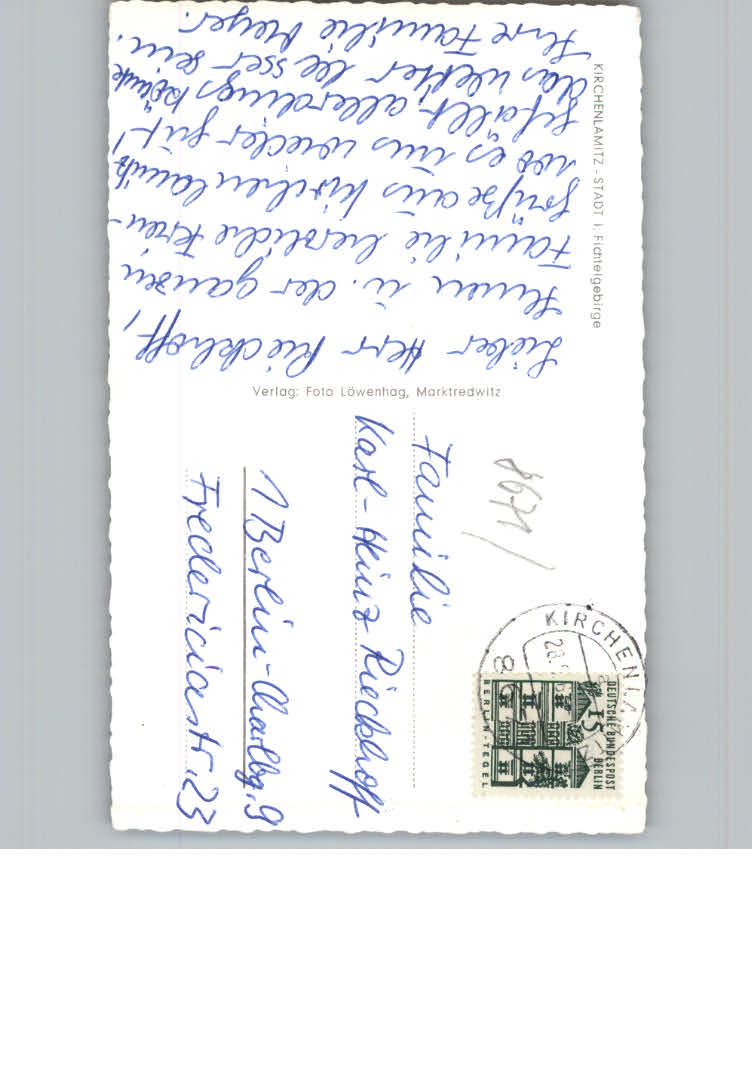 KIRCHENLAMITZ - STADT i. Fichtelgebirge
Lieber Herr Rieckhoff,
Ihnen u. der ganzen
Familie herzliche
Grüße aus Kirchenlamitz
wo es uns wieder gut
gefällt, allerdings könnte
das Wetter besser sein.
Ihre Familie Meyer.
Verlag: Foto Löwenhag, Marktredwitz
8671
Familie
Karl-Heinz Rieckhoff
1 Berlin-Charlbg, 9
Fredericiastr. 23
KIRCHENLAMITZ
DEUTSCHE BUNDESPOST
BERLIN
15
BERLIN-TEGEL